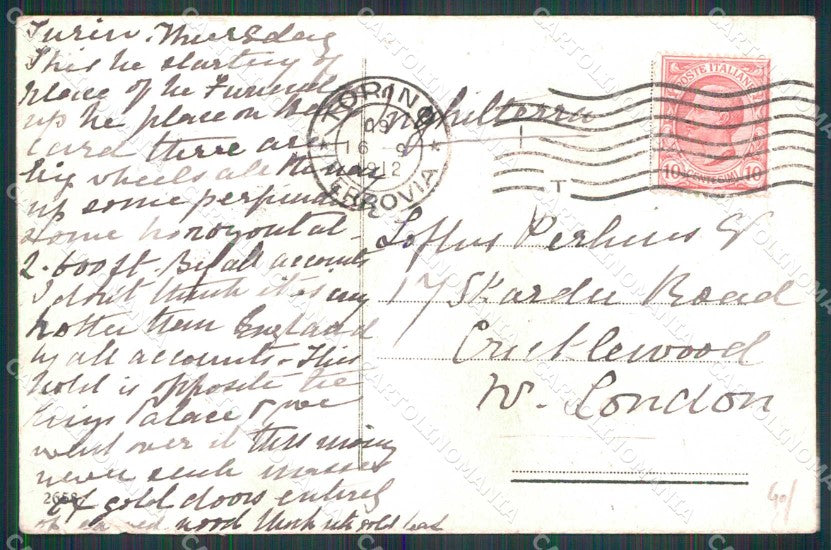 Turin. Thursday
This the starting of
place of the Funicul
up the place on the
card there are
big wheels all the way
up some perpendic
some horozontal
2.600 ft. By all accounts
I don't think it is any
hotter than England
by all accounts - This
hotel is opposite the
Kings Palace & we
went over it this morning
never such masses
of gold doors entirely
of wood thick with gold leaf
2658
TORINO
16 8
1912
FERROVIA
Inghilterra
T
POSTE ITALIANE
10 CENTESIMI 10
Loftus Perkins Esq
17 Skardu Road
Cricklewood
W. London
CARTOLINOMANIA